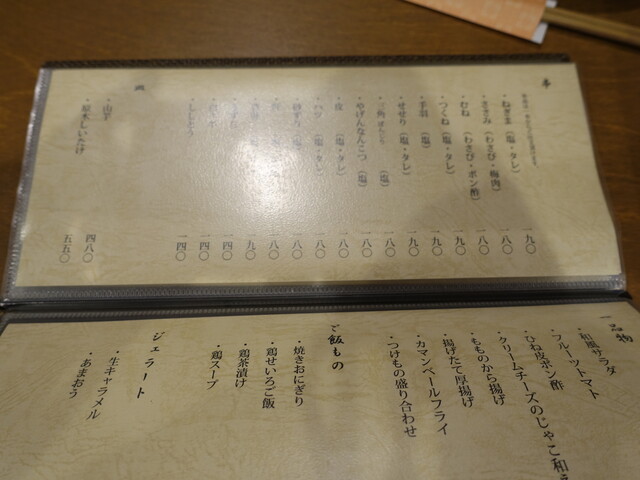 串
ねぎま（塩・タレ） 一九〇
ささみ（わさび・梅肉） 一八〇
むね（わさび・ポン酢） 一八〇
つくね（塩・タレ） 一九〇
手羽（塩） 一九〇
せせり（塩・タレ） 一九〇
三角 ぼんじり（塩） 一八〇
やげんなんこつ（塩） 一八〇
皮（塩・タレ） 一八〇
ハツ（塩・タレ） 一八〇
一八〇
一八〇
一九〇
一四〇
一四〇
ししとう 一四〇
山芋 四八〇
原木しいたけ 五五〇
一品物
和風サラダ
フルーツトマト
ひね皮ポン酢
クリームチーズのじゃこ和え
ももから揚げ
揚げたて厚揚げ
カマンベールフライ
つけもの盛り合わせ
ご飯もの
焼きおにぎり
鶏せいろご飯
鶏茶漬け
鶏スープ
ジェラート
生キャラメル
あまおう